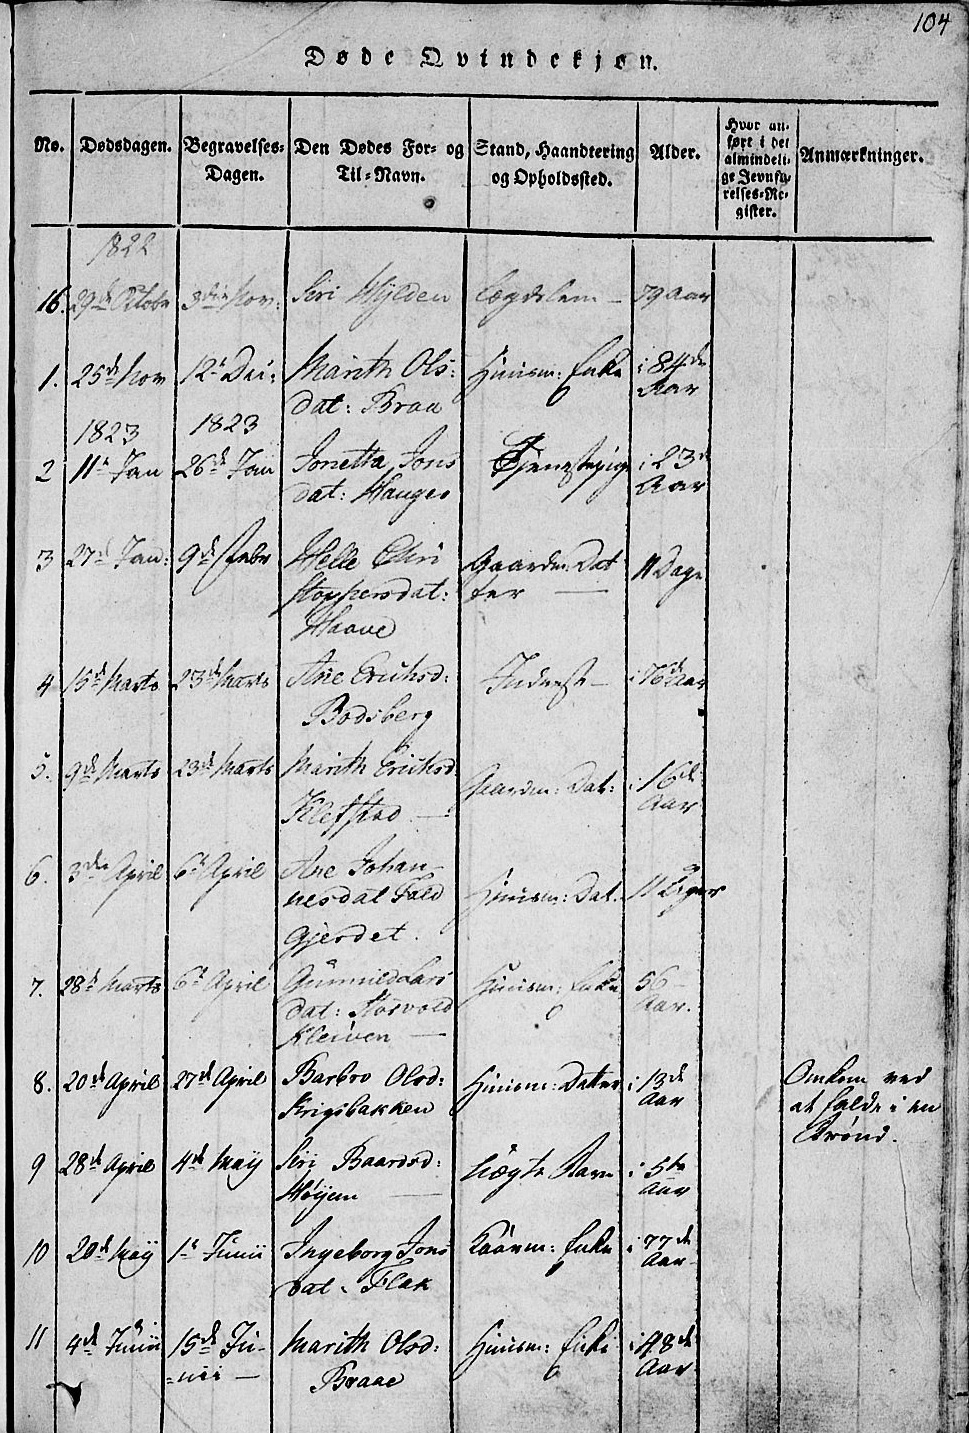 104
Døde Qvindekjøn.
No. Dødsdagen. Begravelses-Dagen. Den Dødes For- og Til-Navn. Stand, Haandtering og Opholdssted. Alder. Hvor anført i det almindelige Jevnførelses-Register. Anmærkninger.
1822
16. 29de Octobr 3die Nov: Siri Hylden Lægdslem – 79 Aar
1. 25de Nov 12te Dec: Marith Ols: Huusm: Enke i 84de
dat: Braa Aar
1823 1823
2 11te Jan 26de Jan Jonetta Jons Tjenestepige i 23de
dat: Hauger Aar
3 27de Jan: 9de Febr Helle Chri Gaardm: Dat 11 Dage
stophersdat: ter —
Haave
4 15de Marts 23de Marts Ane Erichsd: Inderst – i 76de Aar
Bodsberg
5. 9de Marts 23de Marts Marith Erichsd Gaardm: Dat: i 16de
Klefstad — Aar
6. 3die April 6te April Ane Johan
nesdat Fald Huusm: Dat. 11 Uger
Gjerdet.
7. 28de Marts 6te April Gunnild Lars Huusm: Enke 56
dat: Storvold Aar.
Kleiven —
8. 20de April 27de April Barbro Olsd: Huusm: Datter i 13de Omkom ved
Krigsbakken Aar at falde i en
Brønd.
9 28de April 4de Maij Siri Baardsd: Uægte Barn i 5te
Høyem — Aar
10 20de Maij 1te Junii Ingeborg Jons Kaarm: Enke i 77de
dat. Flak Aar
11 4de Junii 15de Ju- Marith Olsd: Huusm: Enke i 48de
=nii — Braae Aar